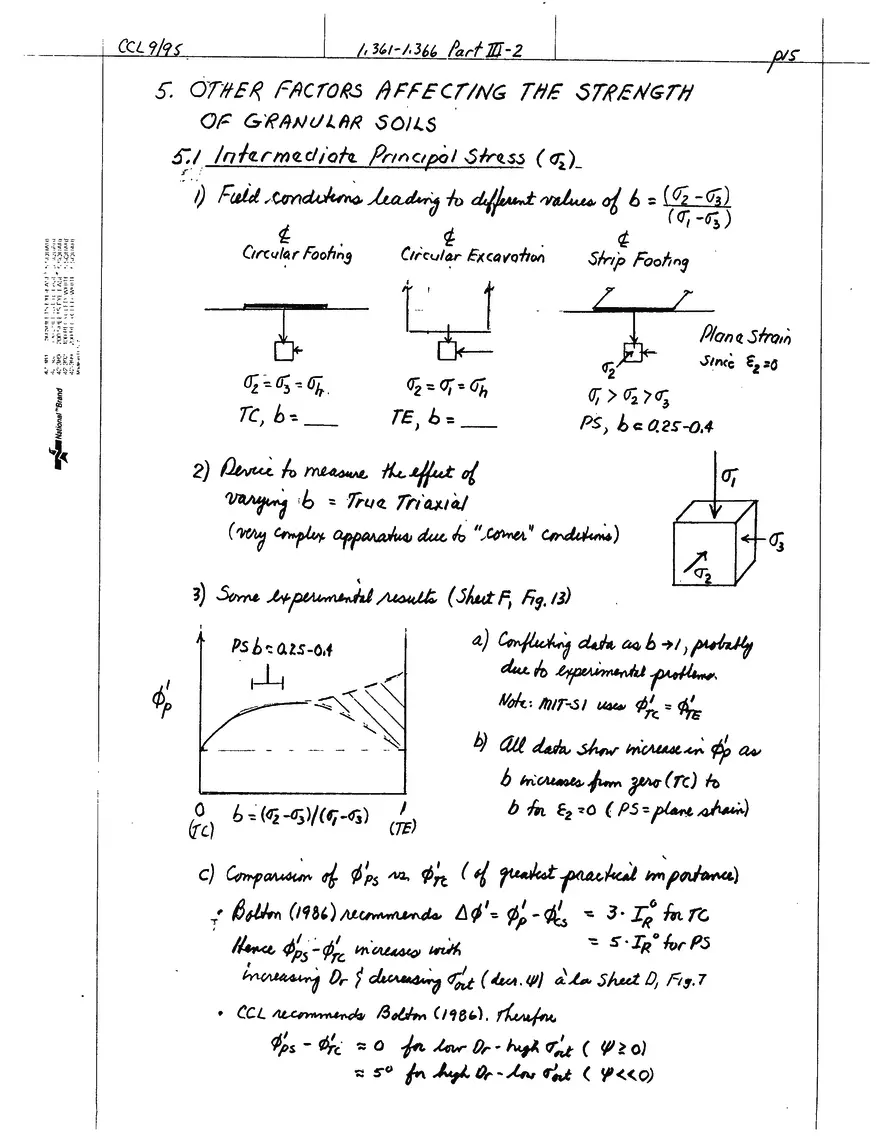 CCL 9/95
1.361-1.366 Part III-2
p15
5. OTHER FACTORS AFFECTING THE STRENGTH
OF GRANULAR SOILS
5.1 Intermediate Principal Stress (σ₂)
1) Field conditions leading to different values of b = (σ₂-σ₃)/(σ₁-σ₃)
℄ Circular Footing
℄ Circular Excavation
℄ Strip Footing
σ₂
Plane Strain
Since ε₂=0
σ₂=σ₃=σₕ.
TC, b = ___
σ₂=σ₁=σₕ
TE, b = ___
σ₁ > σ₂ > σ₃
PS, b ≈ 0.25-0.4
2) Device to measure the effect of
varying b = True Triaxial
(very complex apparatus due to "corner" conditions)
σ₁
σ₃
σ₂
3) Some experimental results (Sheet F, Fig. 13)
PS b = 0.25-0.4
ϕ'p
0
(TC)
b = (σ₂-σ₃)/(σ₁-σ₃)
1
(TE)
a) Conflicting data as b → 1, probably
due to experimental problems.
Note: MIT-S1 uses ϕ'TC = ϕ'TE
b) All data show increase in ϕ'p as
b increases from zero (TC) to
b for ε₂=0 (PS = plane strain)
c) Comparision of ϕ'PS vs. ϕ'TC (of greatest practical importance)
• Bolton (1986) recommends Δϕ' = ϕ'p - ϕ'cs = 3·I_R° for TC
= 5·I_R° for PS
Hence ϕ'PS - ϕ'TC increases with
increasing Dr & decreasing σ'oct (decr. ψ) à la Sheet D, Fig. 7
• CCL recommends Bolton (1986). Therefore
ϕ'PS - ϕ'TC ≈ 0 for low Dr - high σ'oct (ψ ≥ 0)
≈ 5° for high Dr - low σ'oct (ψ << 0)
National® Brand